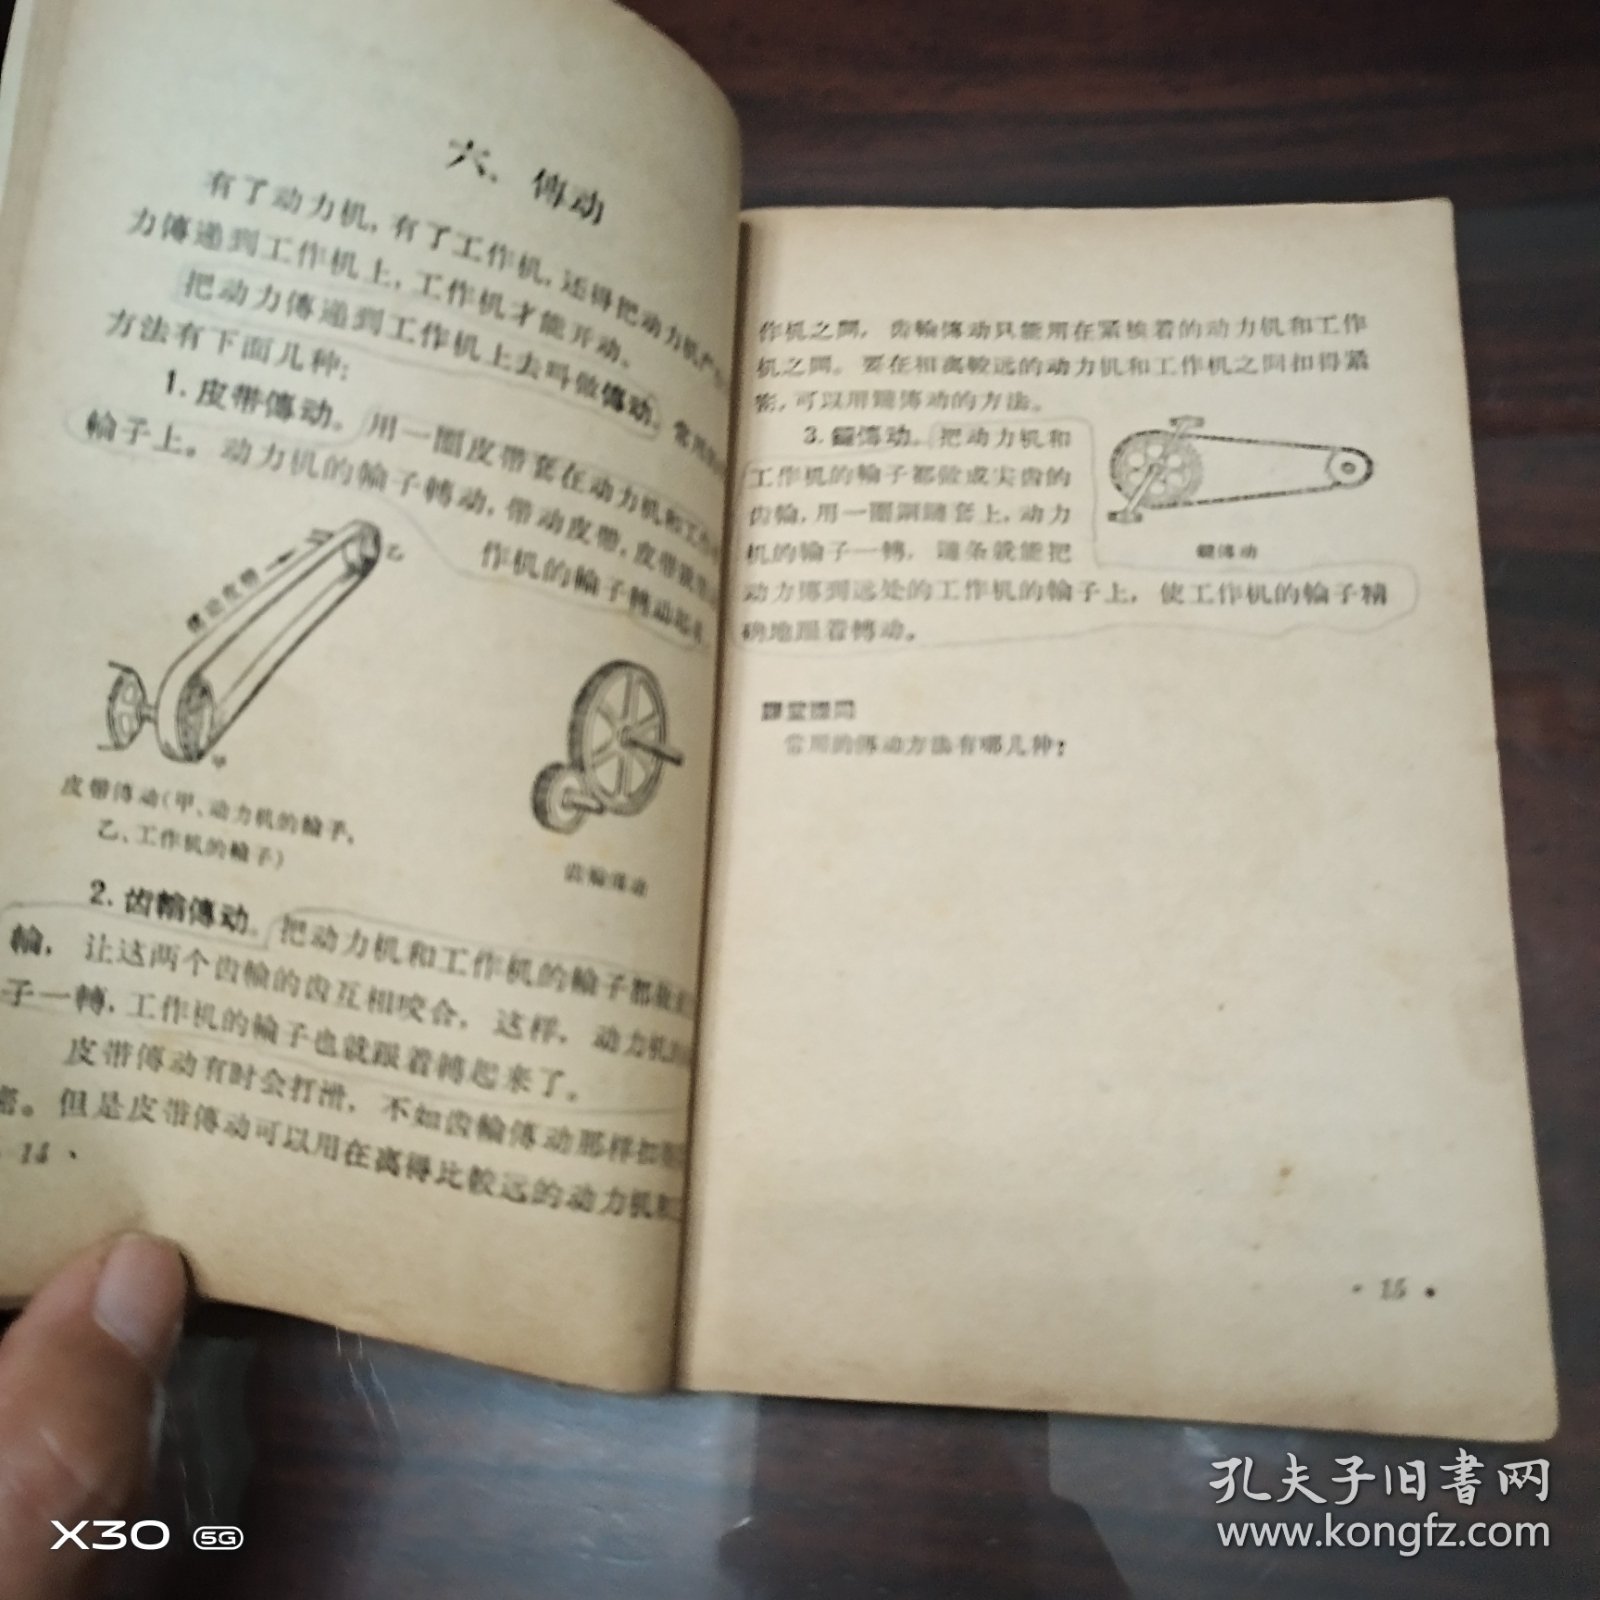 六、傳动
有了动力机，有了工作机，还得把动力机产
力傳递到工作机上，工作机才能开动。
把动力傳递到工作机上去叫做傳动。常用的
方法有下面几种：
1. 皮带傳动。用一圈皮带套在动力机和工作
輪子上。动力机的輪子轉动，带动皮带，皮带就
作机的輪子轉动起来
傳动皮带
乙
甲
皮带傳动（甲、动力机的輪子，
乙、工作机的輪子）
齿輪傳动
2. 齿輪傳动。把动力机和工作机的輪子都做成
輪，让这两个齿輪的齿互相咬合，这样，动力机的
子一轉，工作机的輪子也就跟着轉起来了。
皮带傳动有时会打滑，不如齿輪傳动那样扣得
密。但是皮带傳动可以用在离得比較远的动力机和工
14 ·
作机之間，齿輪傳动只能用在紧挨着的动力机和工作
机之間。要在相离較远的动力机和工作机之間扣得紧
密，可以用鏈傳动的方法。
3. 鏈傳动。把动力机和
工作机的輪子都做成尖齿的
齿輪，用一圈鋼鏈套上，动力
机的輪子一轉，鏈条就能把
动力傳到远处的工作机的輪子上，使工作机的輪子精
确地跟着轉动。
鏈傳动
課堂提問
常用的傳动方法有哪几种？
· 15 ·
X30 5G
孔夫子旧書网
www.kongfz.com